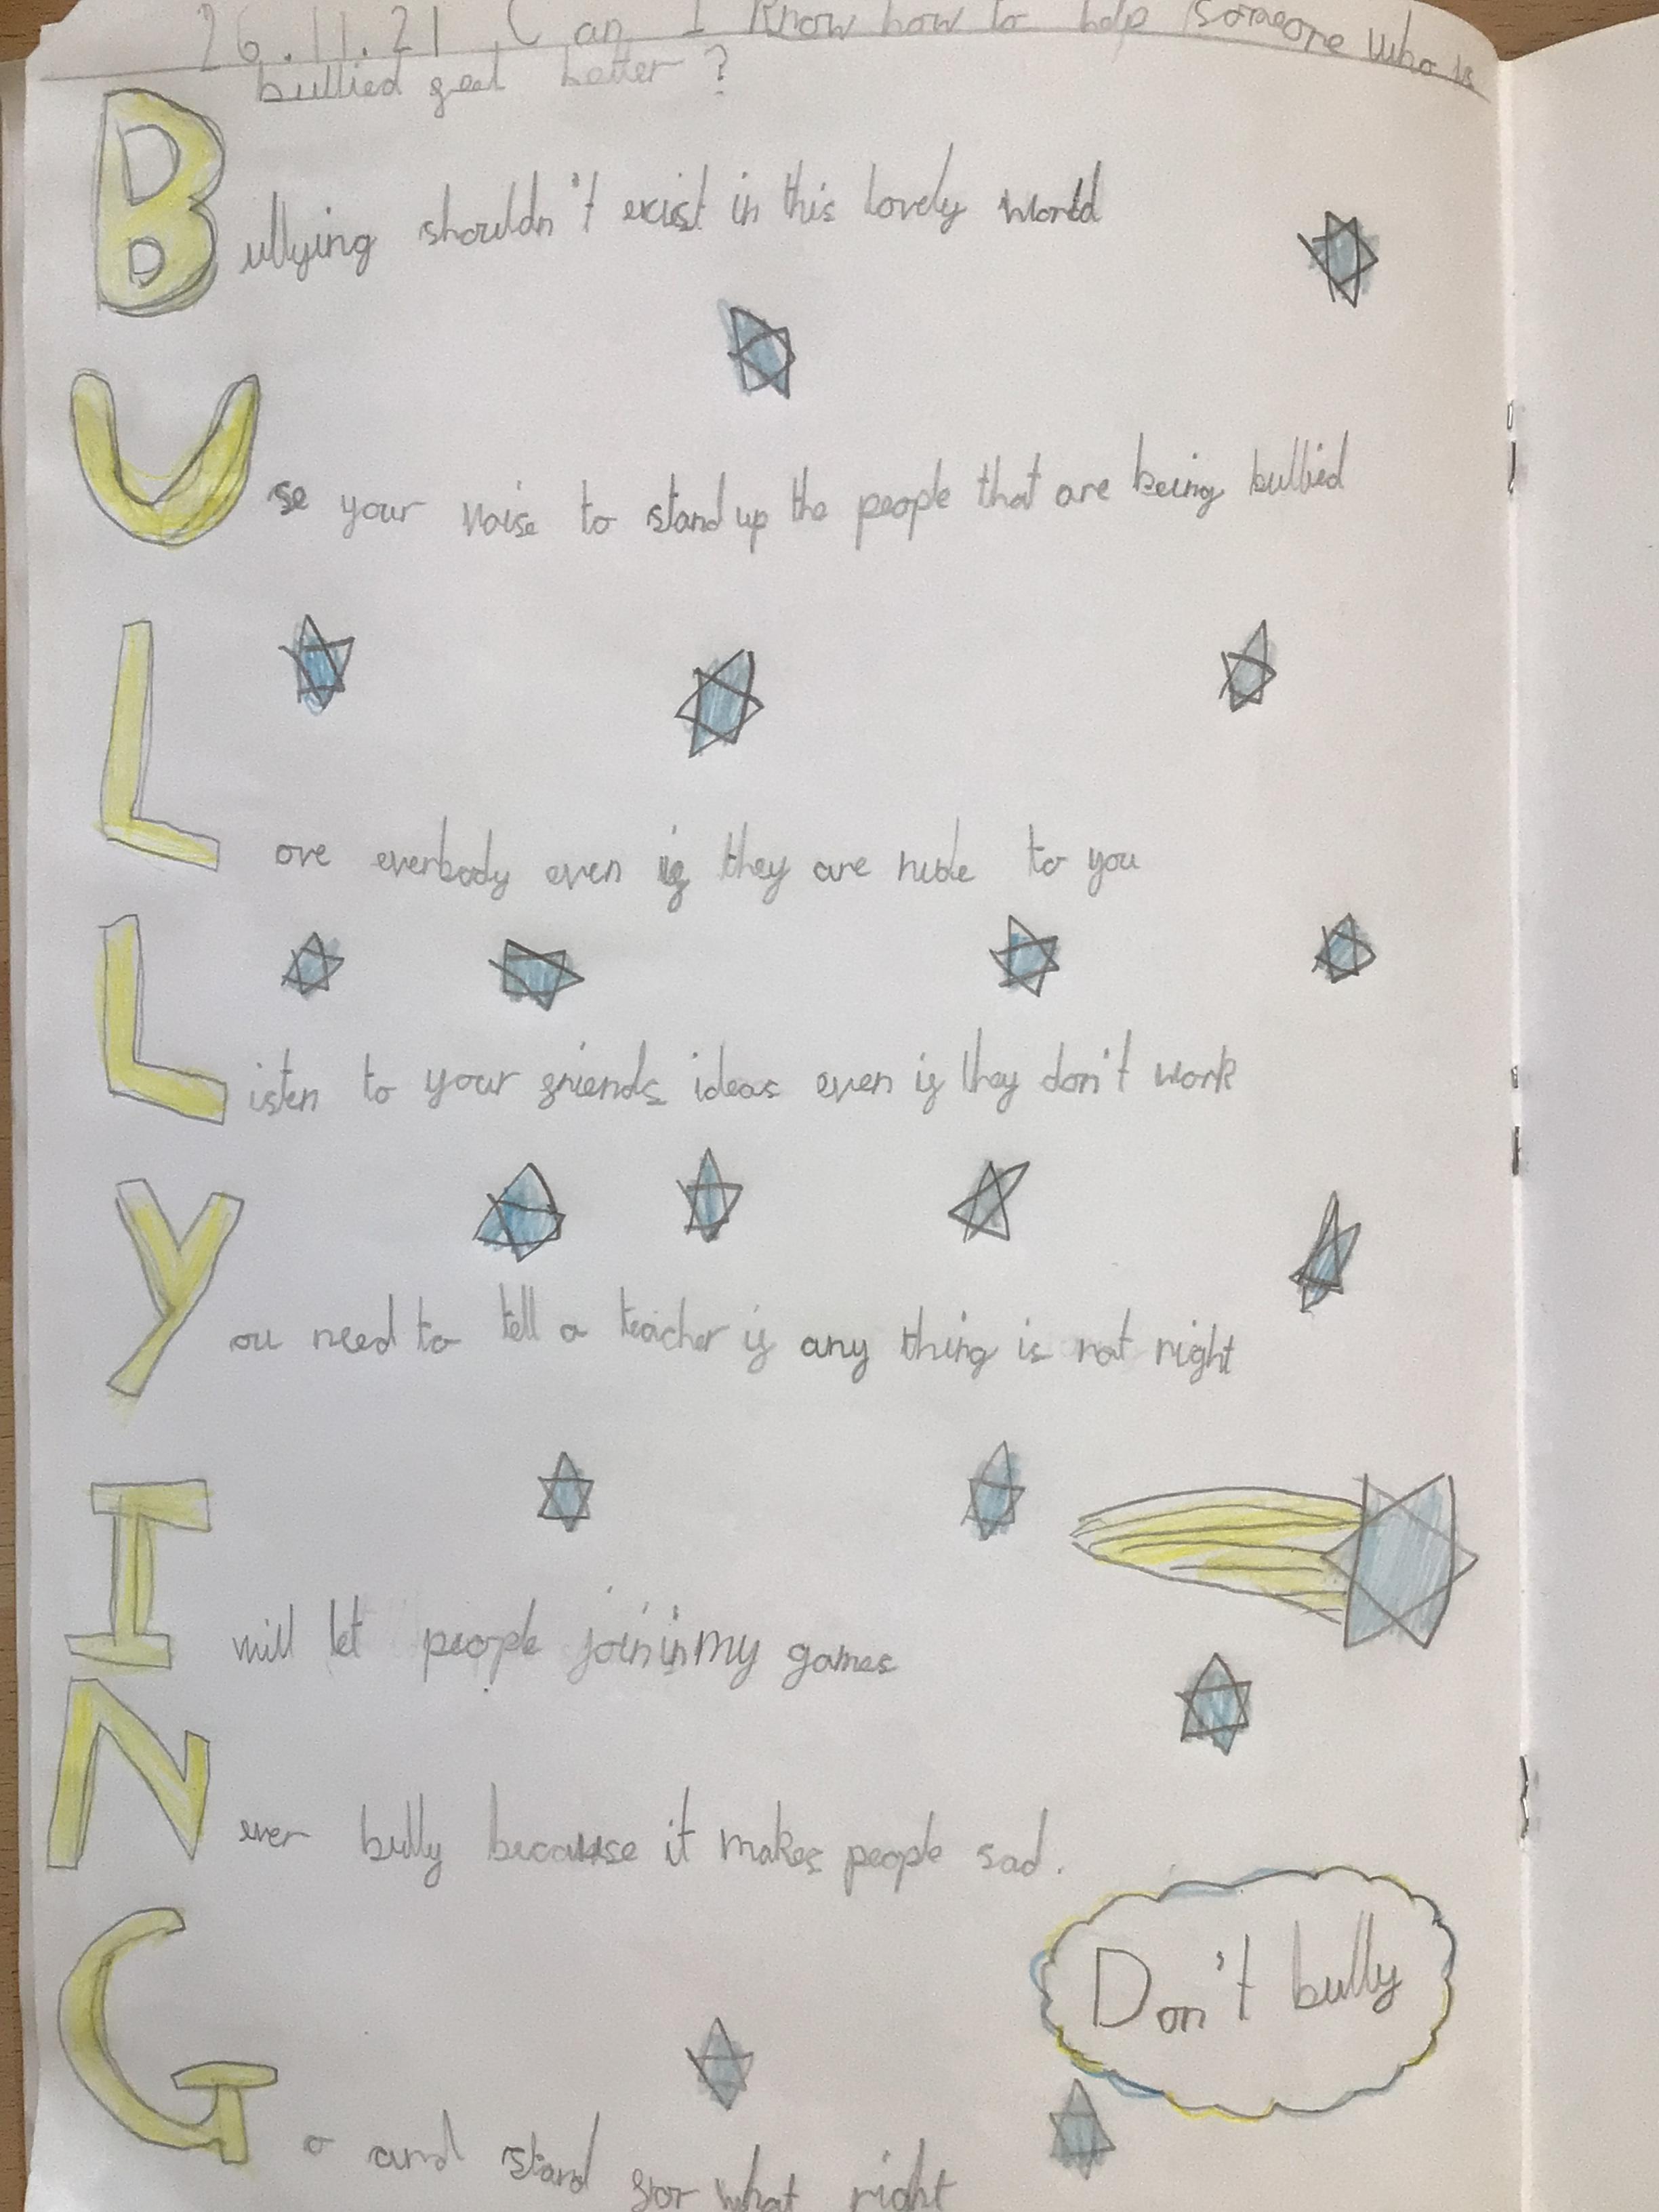 26.11.21 Can I know how to help someone who is
bullied feel better?
Bullying shouldn't exist in this lovely world
Use your voise to stand up the people that are being bullied
Love everbody even if they are rude to you
Listen to your friends ideas even if they don't work
You need to tell a teacher if any thing is not right
I will let people join in my games
Never bully because it makes people sad.
Don't bully
Go and stand for what right